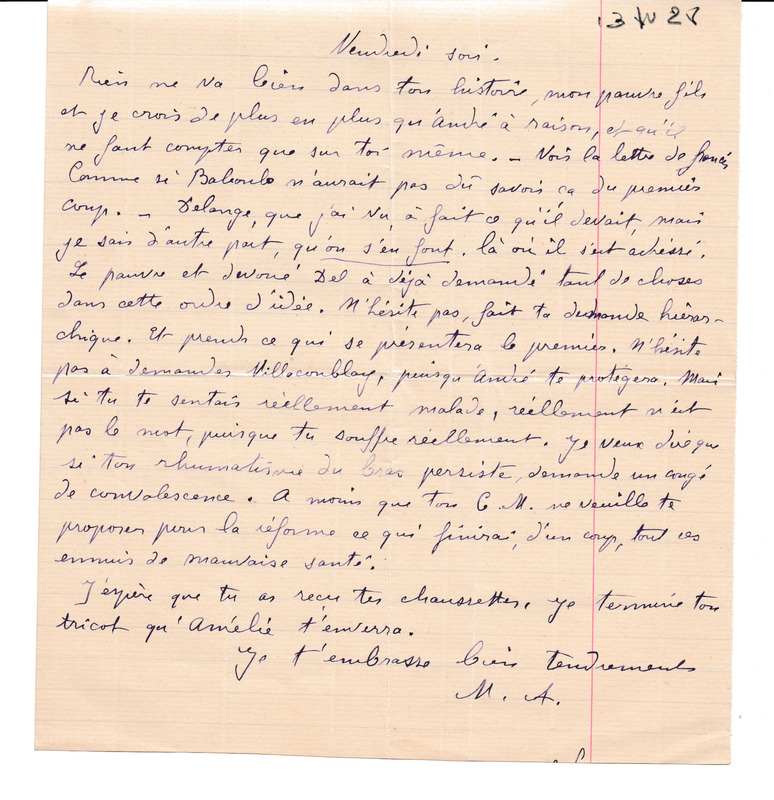 Vendredi soir.
Rien ne va bien dans ton histoire, mon pauvre fils
et je crois de plus en plus qu'André à raison, et qu'il
ne faut compter que sur toi même. - Vois la lettre de
Comme si n'aurait pas dû savoir ça du premier
coup. - Delange, que j'ai vu, à fait ce qu'il devait, mais
je sais d'autre part, qu'on s'en fout. là où il s'est adressé.
Le pauvre et devoué Del à déjà demandé tant de choses
dans cette ordre d'idée. N'hésite pas, fait ta demande hiérar-
chique. Et prends ce qui se présentera le premier. N'hésite
pas à demander Villacoublay, puisqu'André te protégera. Mais
si tu te sentais réellement malade, réellement n'est
pas le mot, puisque tu souffre réellement. Je veux dire que
si ton rhumatisme du bras persiste, demande un congé
de convalescence. A moins que ton C. M. ne veuille te
proposer pour la réforme ce qui finirai, d'un coup, tout ces
ennuis de mauvaise santé.
J'espère que tu as recu tes chaussettes. Je termine ton
tricot qu'Amélie t'enverra.
Je t'embrasse bien tendrement
M. A.